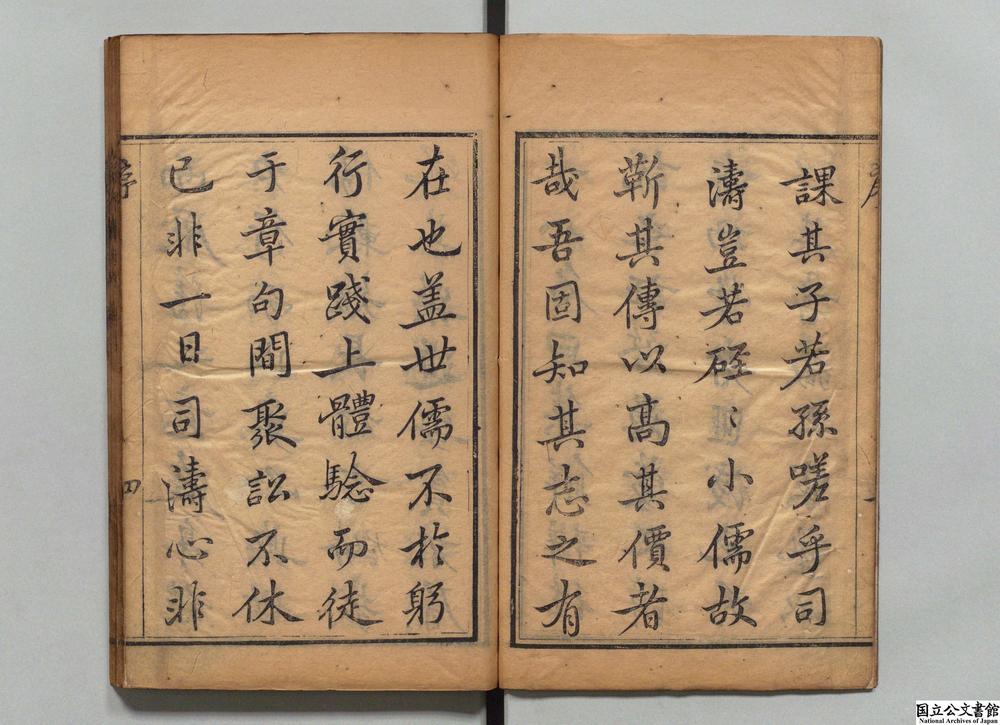 課其子若孫嗟乎司
濤豈若硜〻小儒故
靳其傳以高其價者
哉吾固知其志之有
在也盖世儒不於躬
行實踐上體騐而徒
于章句間聚訟不休
已非一日司濤心非
序
四
国立公文書館
National Archives of Japan